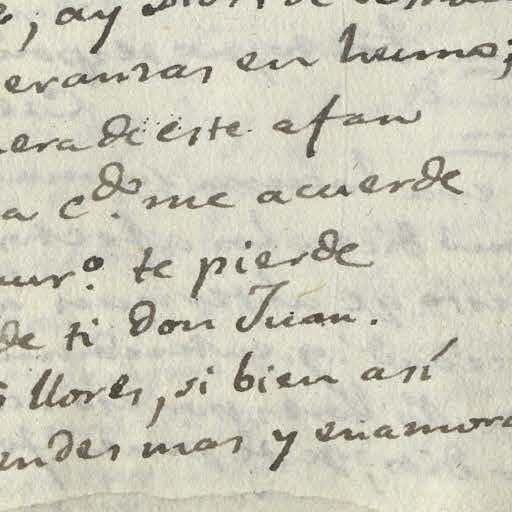 , ay
eranzas en humo;
era de este afan
a cdo. me acuerde
uro. te pierde
de ti don Juan.
s llores, si bien así
endes mas y enamora